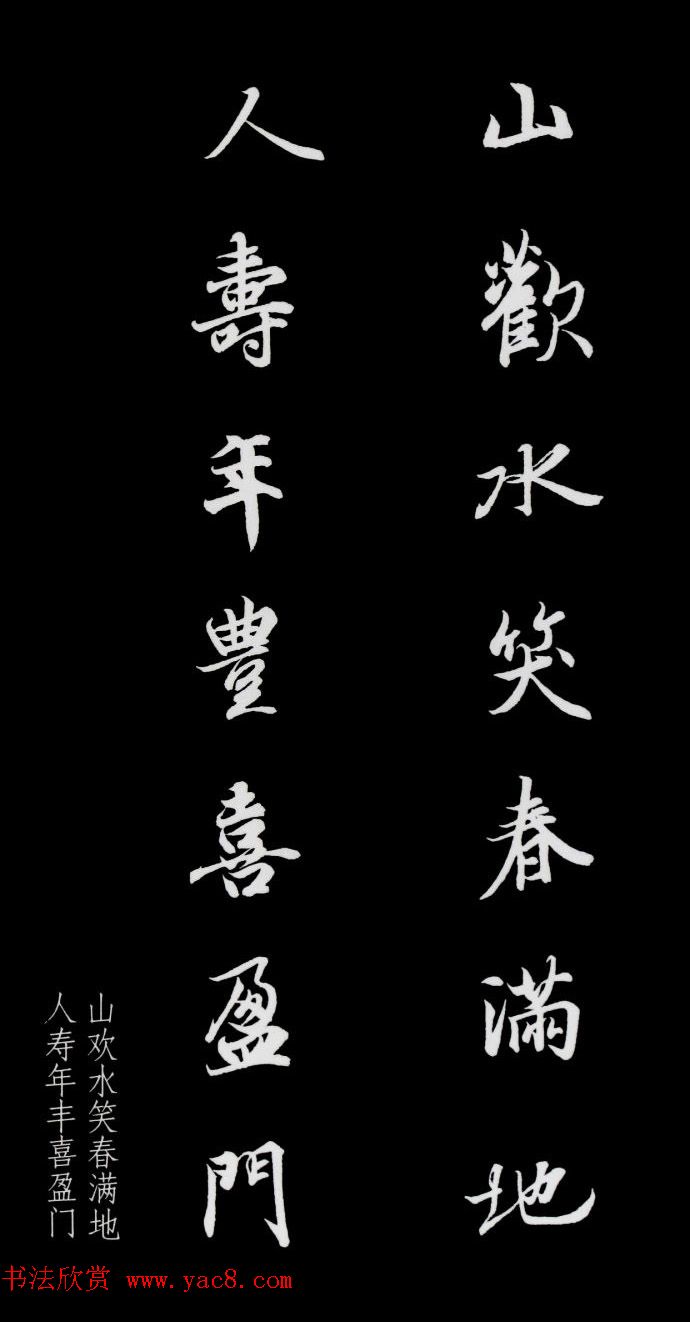 山歡水笑春滿地
人壽年豐喜盈門
山欢水笑春满地
人寿年丰喜盈门
书法欣赏 www.yac8.com